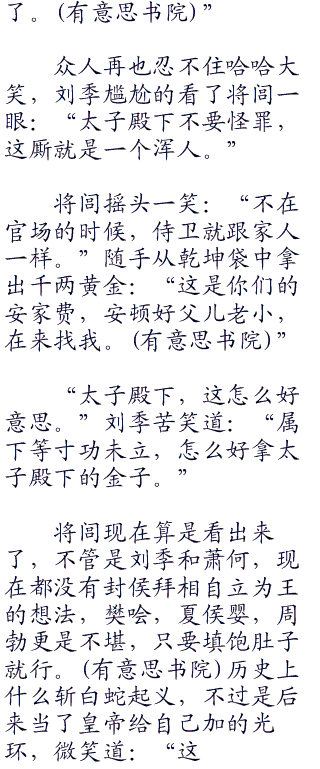 了。(有意思书院)”
众人再也忍不住哈哈大
笑，刘季尴尬的看了将闾一
眼：“太子殿下不要怪罪，
这厮就是一个浑人。”
将闾摇头一笑：“不在
官场的时候，侍卫就跟家人
一样。”随手从乾坤袋中拿
出千两黄金：“这是你们的
安家费，安顿好父儿老小，
在来找我。(有意思书院)”
“太子殿下，这怎么好
意思。”刘季苦笑道：“属
下等寸功未立，怎么好拿太
子殿下的金子。”
将闾现在算是看出来
了，不管是刘季和萧何，现
在都没有封侯拜相自立为王
的想法，樊哙，夏侯婴，周
勃更是不堪，只要填饱肚子
就行。(有意思书院)历史上
什么斩白蛇起义，不过是后
来当了皇帝给自己加的光
环，微笑道：“这